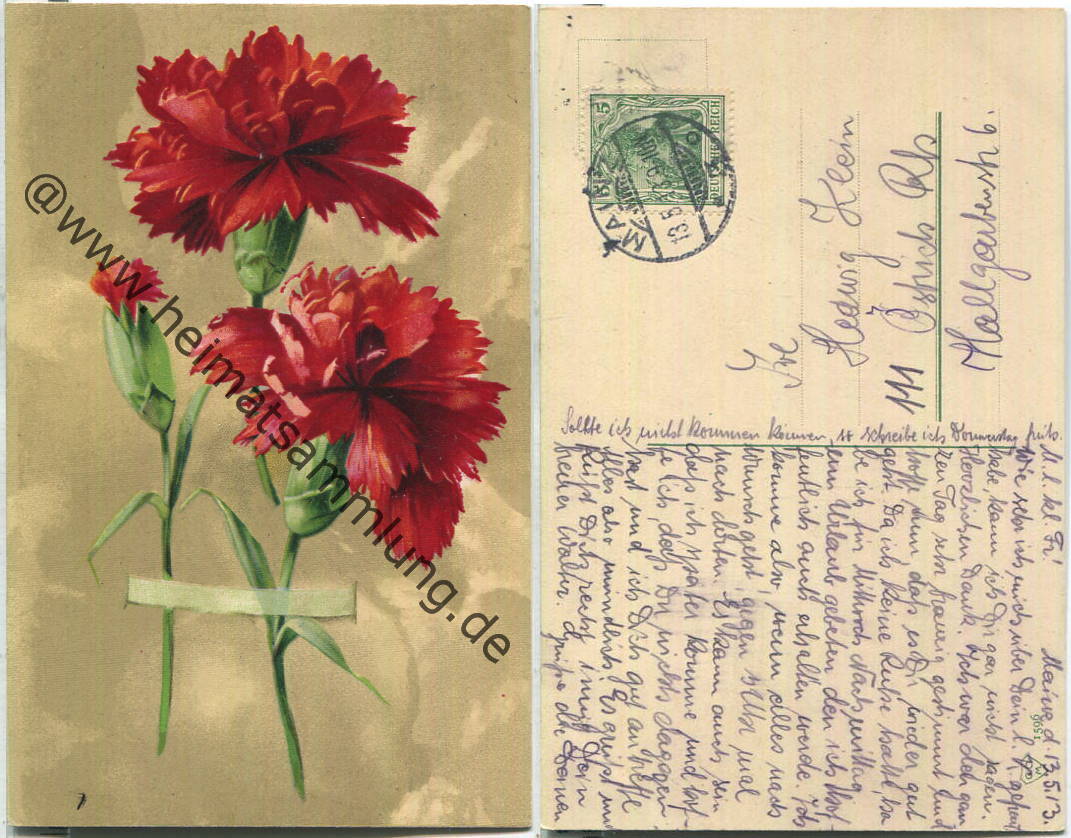 @www.heimatsammlung.de
7
5
DEUTSCHES REICH
MAINZ
13.5
Frl.
Hedwig Klein
in Östrich Rh
Hallgarterstr 6.
Sollte ich nicht kommen können, so schreibe ich Donnerstag früh.
Mainz d. 13.5.13.
M. l. kl. Fr!
Wie sehr ich mich über Dein l.
habe, kann ich Dir gar nicht sagen.
Herzlichen Dank. Ich war den ganzen
Tag sehr traurig gestimmt und
hoffe nun daß es Dir wieder gut
geht. Da ich keine Ruhe hatte, habe
ich für Mittwoch Nachmittag
um Urlaub gebeten den ich hoffentlich
auch erhalten werde. Ich
komme also, wenn alles nach
Wunsch geht, gegen Uhr mal
nach dorten. Es kann auch sein
daß ich später komme und hoffe
ich, daß Du nichts dagegen
hast und ich Dich gut antreffe
Alles also mündlich. Es grüßt und
küßt Dich recht innig Dein
treuer Walter. Grüße die Deinen
1599